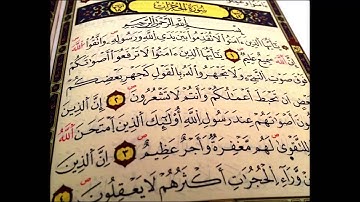 سُورَةُ الحُجُرَاتِ
بِسْمِ اللَّهِ الرَّحْمَٰنِ الرَّحِيمِ
يَٰٓأَيُّهَا الَّذِينَ ءَامَنُوا۟ لَا تُقَدِّمُوا۟ بَيْنَ يَدَىِ اللَّهِ وَرَسُولِهِۦ وَاتَّقُوا۟ اللَّهَ
اللَّهَ سَمِيعٌ عَلِيمٌ ١ يَٰٓأَيُّهَا الَّذِينَ ءَامَنُوا۟ لَا تَرْفَعُوٓا۟ أَصْوَٰتَكُمْ
فَوْقَ صَوْتِ النَّبِىِّ وَلَا تَجْهَرُوا۟ لَهُۥ بِالْقَوْلِ كَجَهْرِ بَعْضِكُمْ
عْضٍ أَن تَحْبَطَ أَعْمَٰلُكُمْ وَأَنتُمْ لَا تَشْعُرُونَ ٢ إِنَّ الَّذِينَ
ونَ أَصْوَٰتَهُمْ عِندَ رَسُولِ اللَّهِ أُو۟لَٰٓئِكَ الَّذِينَ امْتَحَنَ اللَّهُ
لِلتَّقْوَىٰ لَهُم مَّغْفِرَةٌ وَأَجْرٌ عَظِيمٌ ٣ إِنَّ الَّذِينَ
ن وَرَآءِ الْحُجُرَٰتِ أَكْثَرُهُمْ لَا يَعْقِلُونَ ٤